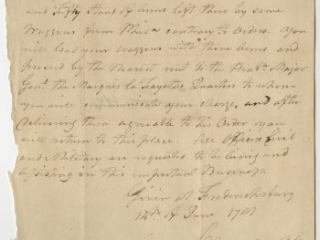 and Fifty stand of arms left there by some
Waggons from Phila contrary to Orders. you
will load your waggons with these Arms and
proceed by the nearest rout to the Honble Major
Genl the Marquis la Fayettes Quarters to whom
you will communicate your charge, and after
delivering them agreeable to this Order you
will return to this place. All Officers Civil
and Military are requested to be aiding and
assisting in this important Business
Given at Fredericksburg
14th of June 1781